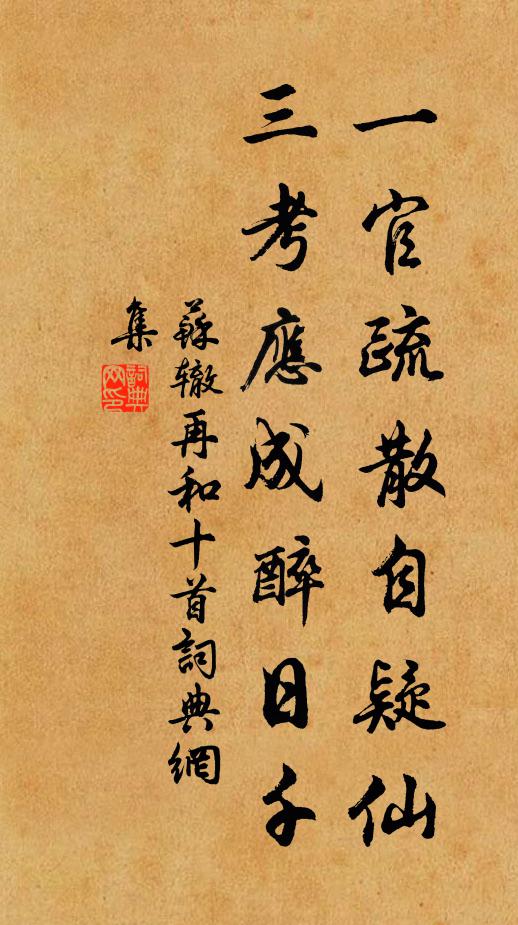 一官疏散自疑仙
三考應成醉日千
蘇辙再和十首詞典網
集
詞典
网印